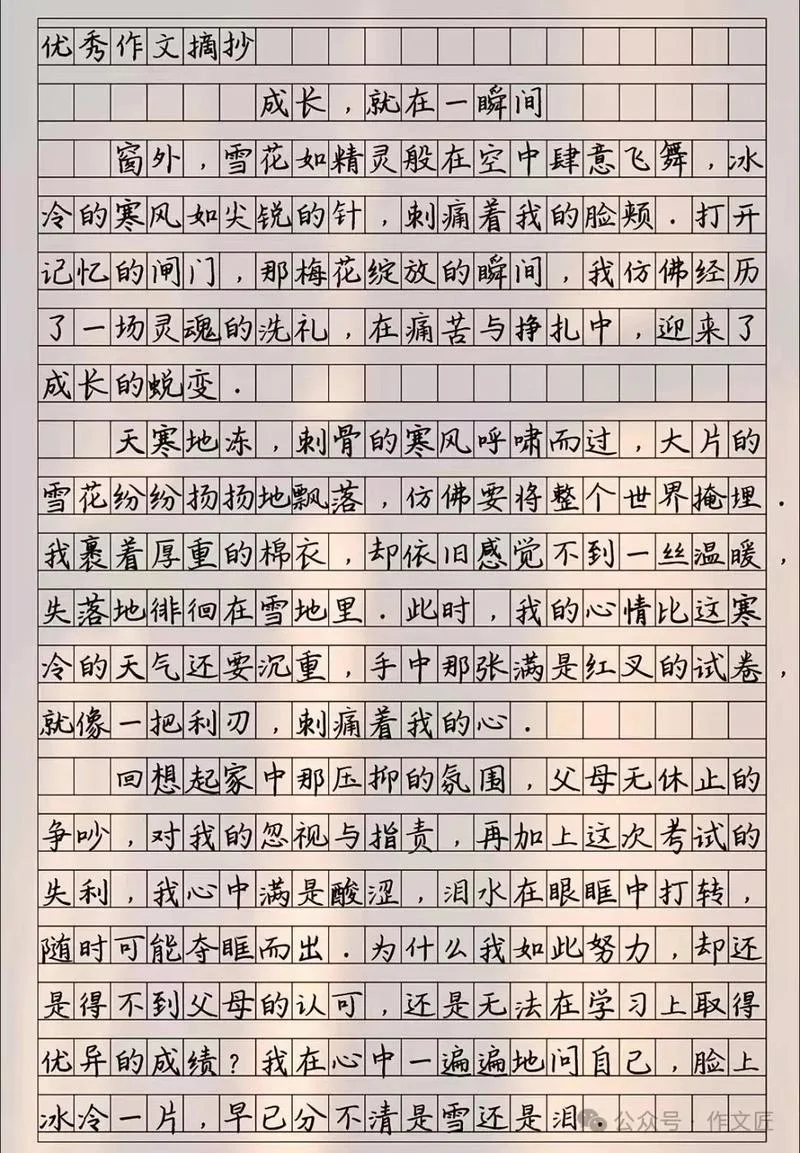 优秀作文摘抄
成长，就在一瞬间
窗外，雪花如精灵般在空中肆意飞舞，冰
冷的寒风如尖锐的针，刺痛着我的脸颊．打开
记忆的闸门，那梅花绽放的瞬间，我仿佛经历
了一场灵魂的洗礼，在痛苦与挣扎中，迎来了
成长的蜕变．
天寒地冻，刺骨的寒风呼啸而过，大片的
雪花纷纷扬扬地飘落，仿佛要将整个世界掩埋．
我裹着厚重的棉衣，却依旧感觉不到一丝温暖，
失落地徘徊在雪地里．此时，我的心情比这寒
冷的天气还要沉重，手中那张满是红叉的试卷，
就像一把利刃，刺痛着我的心．
回想起家中那压抑的氛围，父母无休止的
争吵，对我的忽视与指责，再加上这次考试的
失利，我心中满是酸涩，泪水在眼眶中打转，
随时可能夺眶而出．为什么我如此努力，却还
是得不到父母的认可，还是无法在学习上取得
优异的成绩？我在心中一遍遍地问自己，脸上
冰冷一片，早已分不清是雪还是泪．
公众号·作文匠